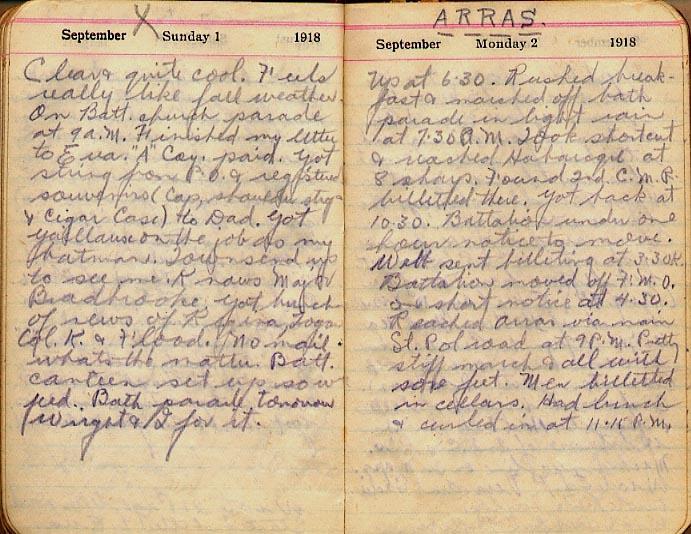 X
September Sunday 1 1918
Clear & quite cool. Feels
really like fall weather.
On Batt. church parade
at 9 A.M. Finished my letter
to Eva. "A" Coy. paid. Got
string from P.O. & registered
souvenirs (Cap, shoulder
& Cigar Case) to Dad. Got
on the job as my
batman. Townsend up
to see me. Knows Major
Bradbrooke. Got bunch
of news of Regina, 
Col. K. & Flood. No mail
whats the matter. Batt.
canteen set up so we
fed. Bath parade tomorrow
Wright & I for it.
ARRAS.
September Monday 2 1918
Up at 6.30. Rushed break-
fast & marched off bath
parade in light rain
at 7.30 A.M. Took shortcut
& reached Habarcq at
8 sharp. Found 2nd C.M.R.
billetted there. Got back at
10.30. Battalion under one
hour notice to move.
Watt sent billeting at 3.30
Battalion moved off F.M.O.
short notice at 4.30.
Reached Arras via main
St. Pol road at 9 P.M. Pretty
stiff march & all with
sore feet. Men billetted
in cellars. Had lunch
& curled in at 11.15 P.M.